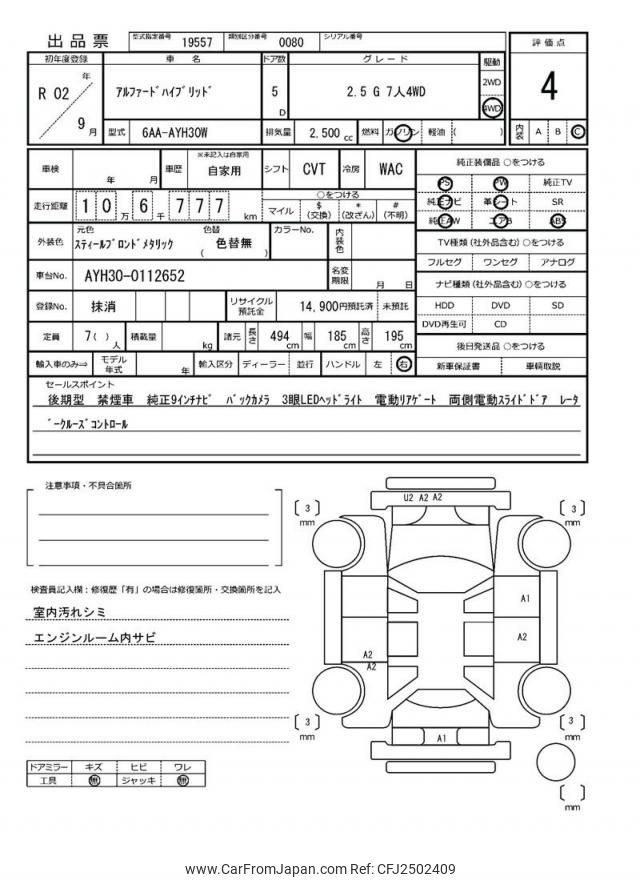 出品票 型式指定番号 19557 類別区分番号 0080 シリアル番号
評価点
4
内装 A B C
初年度登録 車名 ドア数 グレード 駆動
R 02 年 9 月
アルファードハイブリッド 5 D 2.5 G 7人4WD 2WD 4WD
型式 6AA-AYH30W 排気量 2,500 cc 燃料 ガソリン 軽油 ( )
車検 年 月 車歴 ※未記入は自家用 自家用 シフト CVT 冷房 WAC
走行距離 1 0 万 6 千 7 7 7 km
○をつける
マイル $ (交換) * (改ざん) # (不明)
外装色 元色 スティールブロンドメタリック 色替 色替無 ( ) カラーNo. 内装色
車台No. AYH30-0112652 名変期限 月 日
登録No. 抹消 リサイクル預託金 14,900円預託済 未預託
定員 7( ) 人 積載量 kg 諸元 長さ 494 cm 幅 185 cm 高さ 195 cm
輸入車のみ⇒ モデル年式 年 輸入区分 ディーラー 並行 ハンドル 左 右
純正装備品 ○をつける
PS PW 純正TV
純正ナビ 革シート SR
純正AW エアB ABS
TV種類(社外品含む)○をつける
フルセグ ワンセグ アナログ
ナビ種類(社外品含む)○をつける
HDD DVD SD
DVD再生可 CD
後日発送品 ○をつける
新車保証書 車輌取説
セールスポイント
後期型 禁煙車 純正9インチナビ バックカメラ 3眼LEDヘッドライト 電動リアゲート 両側電動スライドドア レータ
゙ークルーズコントロール
注意事項・不具合箇所
検査員記入欄:修復歴「有」の場合は修復箇所・交換箇所を記入
室内汚れシミ
エンジンルーム内サビ
ドアミラー キズ ヒビ ワレ
工具 無 ジャッキ 無
U2 A2 A2
[ 3 ] mm
[ 3 ] mm
A1
A2
A2
A2
[ 3 ] mm
[ 3 ] mm
A1
[ ] mm
www.CarFromJapan.com Ref: CFJ2502409